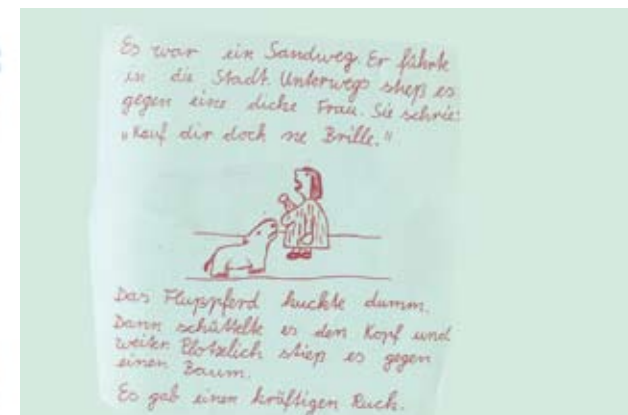 Es war ein Sandweg. Er führte
in die Stadt. Unterwegs stieß es
gegen eine dicke Frau. Sie schrie:
„Kauf dir doch ne Brille."
Das Fluppferd kuckte dumm.
Dann schüttelte es den Kopf und
weiter. Plötzlich stieß es gegen
einen Baum.
Es gab einen kräftigen Ruck.